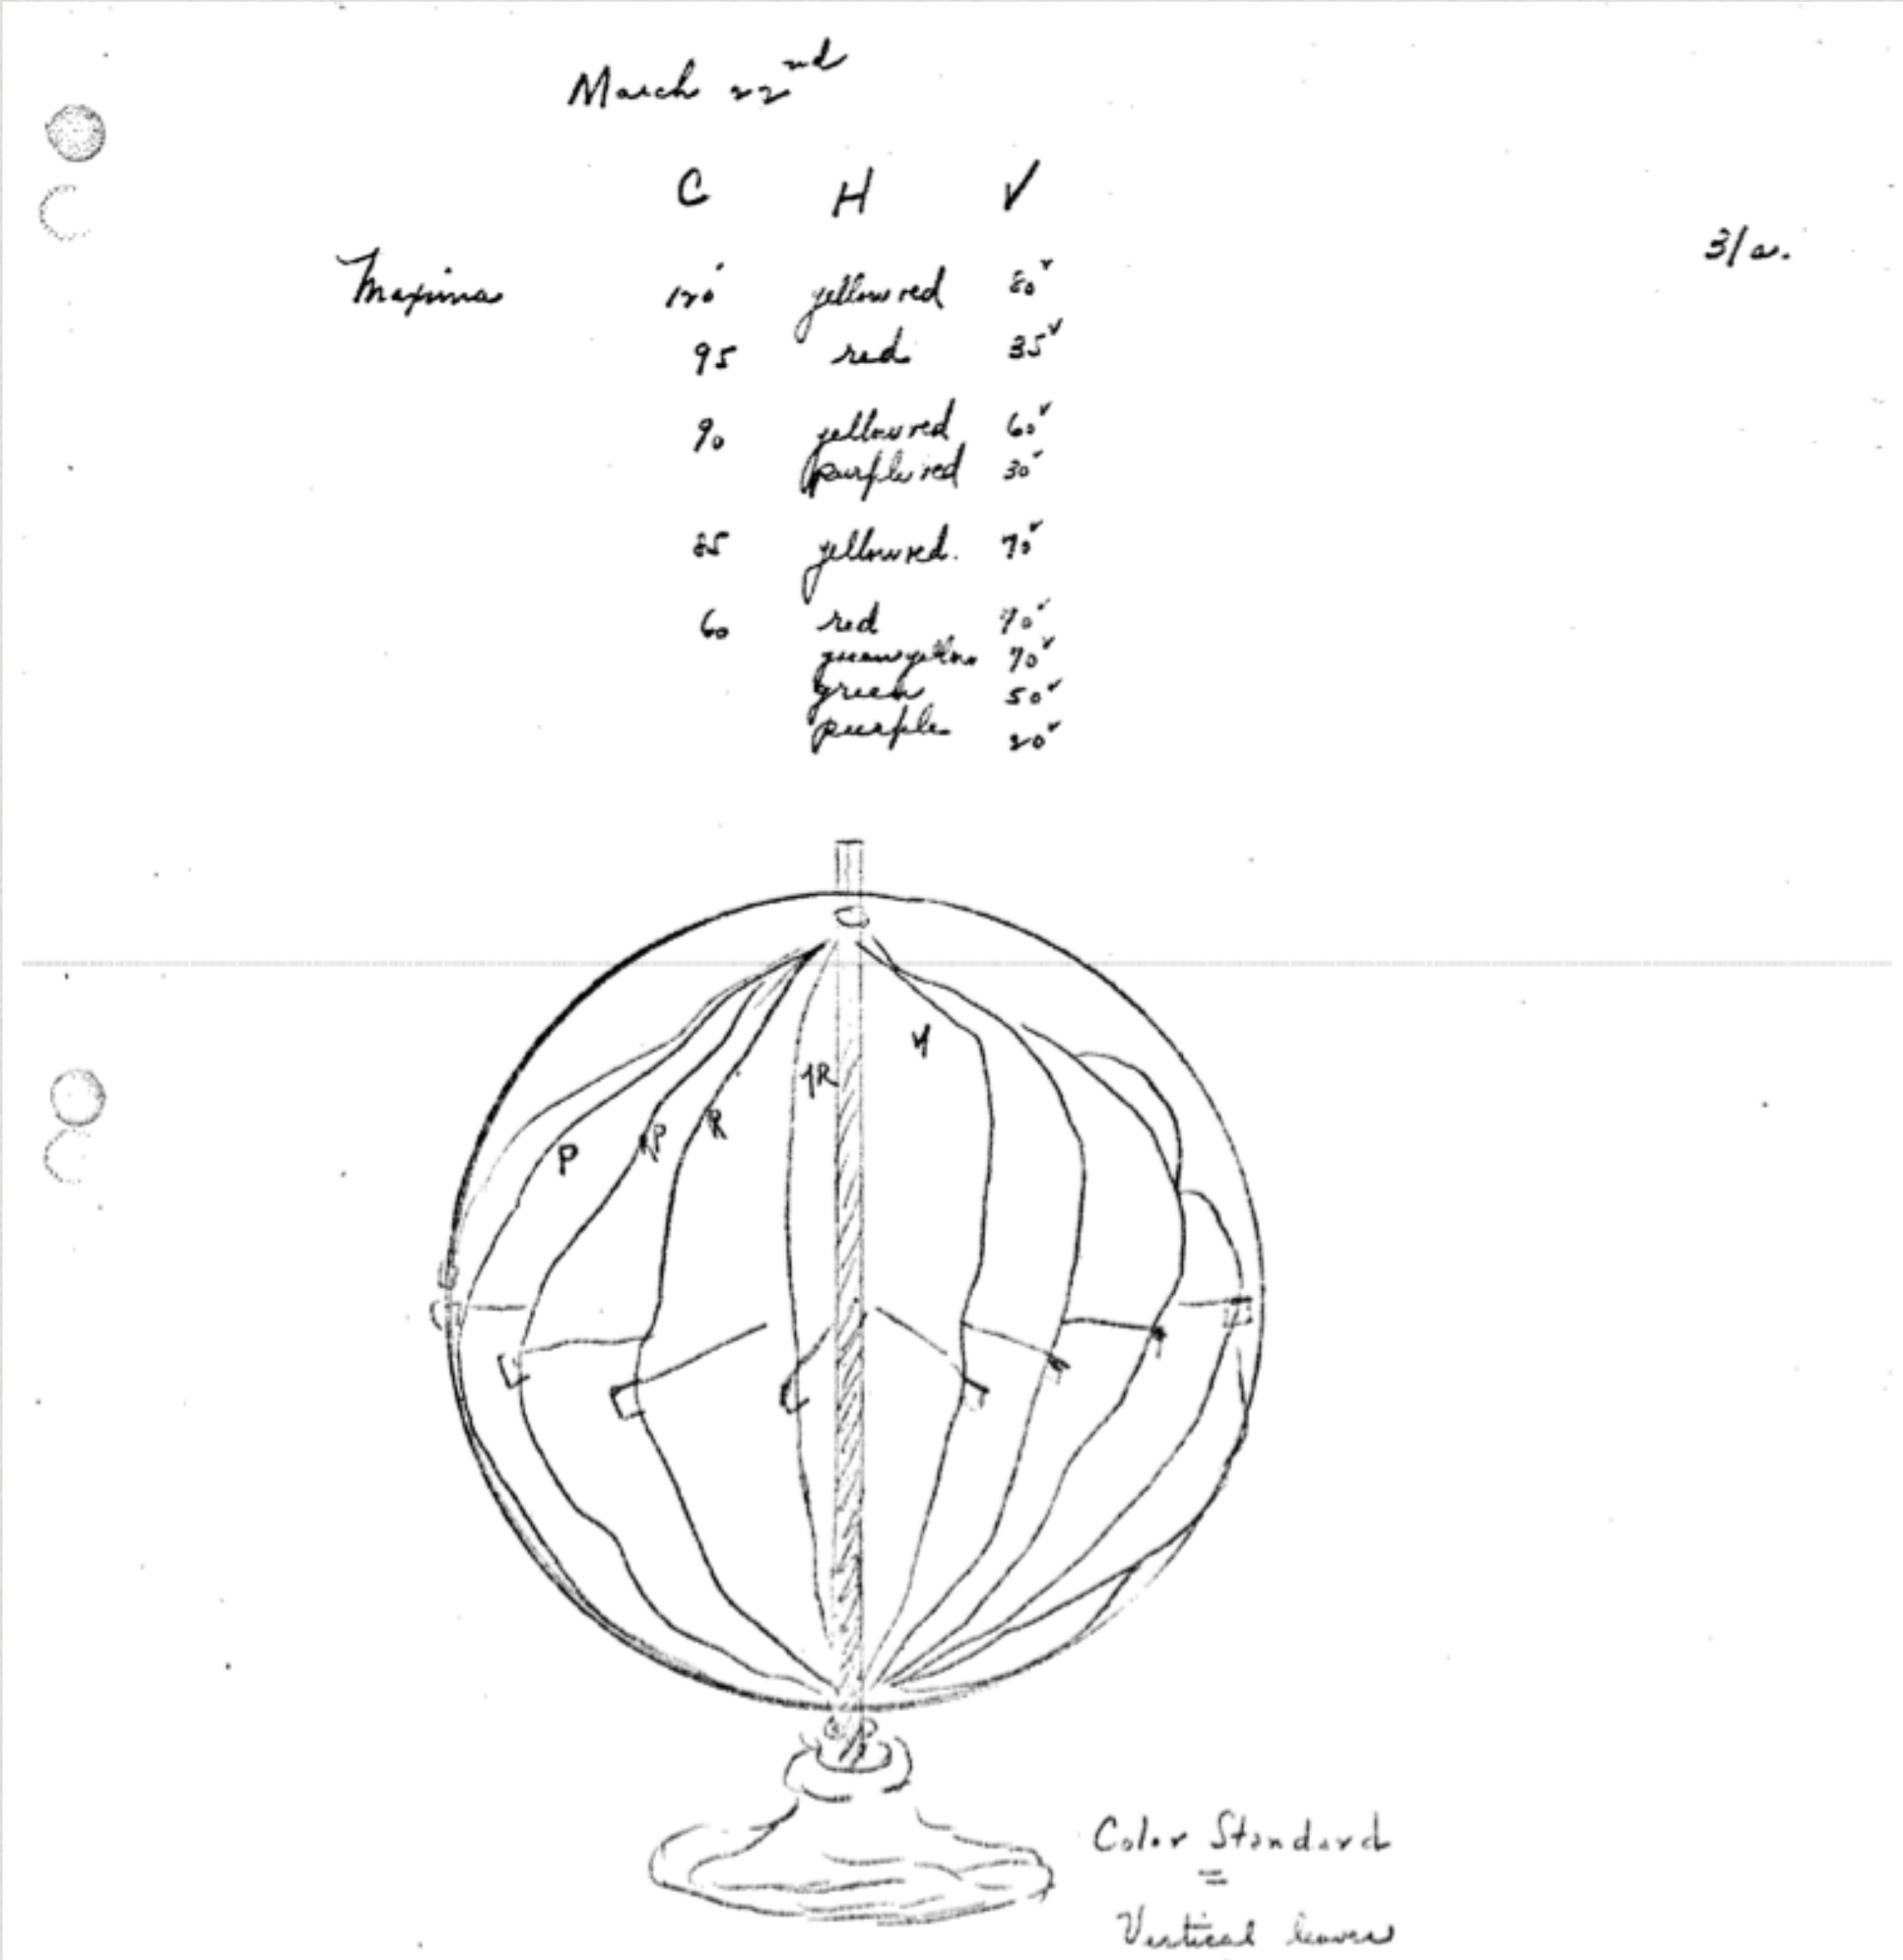 March 22nd
C H V
3/a.
Maxima 120 yellow red 80
95 red 35
90 yellow red 60
purple red 30
85 yellow red. 70
60 red 70
green yellow 70
green 50
purple 20
Y
YR
R
RP
P
Color Standard
=
Vertical leaves